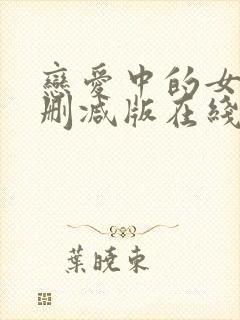 戀愛中的女
刪減版在綫
葉曉東